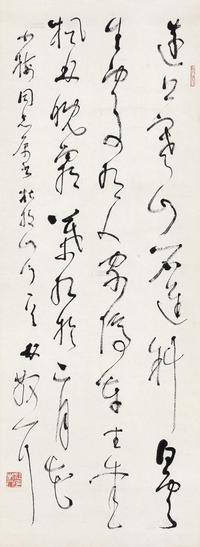 遠上寒山石逕斜白雲
生處有人家停車坐愛
楓林晚霜葉紅於二月花
同志屬書杜牧山行一首散耳